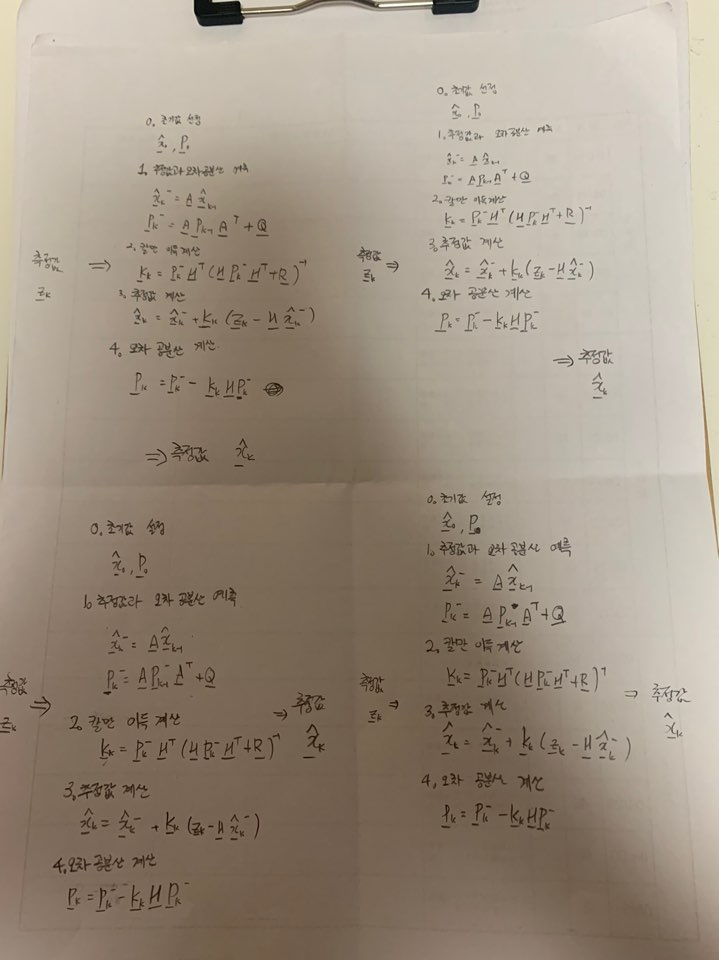 0. 초기값 선정
x̂₀, P₀
1. 추정값과 오차공분산 예측
x̂ₖ⁻ = A x̂ₖ₋₁
Pₖ⁻ = A Pₖ₋₁ Aᵀ + Q
2. 칼만 이득계산
Kₖ = Pₖ⁻ Hᵀ (H Pₖ⁻ Hᵀ + R)⁻¹
측정값 ⇒
zₖ
3. 추정값 계산
x̂ₖ = x̂ₖ⁻ + Kₖ (zₖ - H x̂ₖ⁻)
4. 오차 공분산 계산.
Pₖ = Pₖ⁻ - Kₖ H Pₖ⁻
⇒ 추정값 x̂ₖ
0. 초기값 선정
x̂₀, P₀
1. 추정값과 오차공분산 예측
x̂ₖ⁻ = A x̂ₖ₋₁
Pₖ⁻ = A Pₖ₋₁ Aᵀ + Q
2. 칼만 이득계산
Kₖ = Pₖ⁻ Hᵀ (H Pₖ⁻ Hᵀ + R)⁻¹
측정값
zₖ ⇒
3. 추정값 계산
x̂ₖ = x̂ₖ⁻ + Kₖ (zₖ - H x̂ₖ⁻)
4. 오차 공분산 계산
Pₖ = Pₖ⁻ - Kₖ H Pₖ⁻
⇒ 추정값
x̂ₖ
0. 초기값 설정
x̂₀, P₀
1. 추정값과 오차 공분산 예측
x̂ₖ⁻ = A x̂ₖ₋₁
Pₖ⁻ = A Pₖ₋₁ Aᵀ + Q
측정값 ⇒
zₖ
2. 칼만 이득 계산
Kₖ = Pₖ⁻ Hᵀ (H Pₖ⁻ Hᵀ + R)⁻¹
⇒ 추정값
x̂ₖ
3. 추정값 계산
x̂ₖ = x̂ₖ⁻ + Kₖ (zₖ - H x̂ₖ⁻)
4. 오차 공분산 계산
Pₖ = Pₖ⁻ - Kₖ H Pₖ⁻
0. 초기값 설정
x̂₀, P₀
1. 추정값과 오차 공분산 예측
x̂ₖ⁻ = A x̂ₖ₋₁
Pₖ⁻ = A Pₖ₋₁ Aᵀ + Q
2. 칼만 이득 계산
Kₖ = Pₖ⁻ Hᵀ (H Pₖ⁻ Hᵀ + R)⁻¹
측정값
zₖ ⇒
⇒ 추정값
x̂ₖ
3. 추정값 계산
x̂ₖ = x̂ₖ⁻ + Kₖ (zₖ - H x̂ₖ⁻)
4. 오차 공분산 계산
Pₖ = Pₖ⁻ - Kₖ H Pₖ⁻